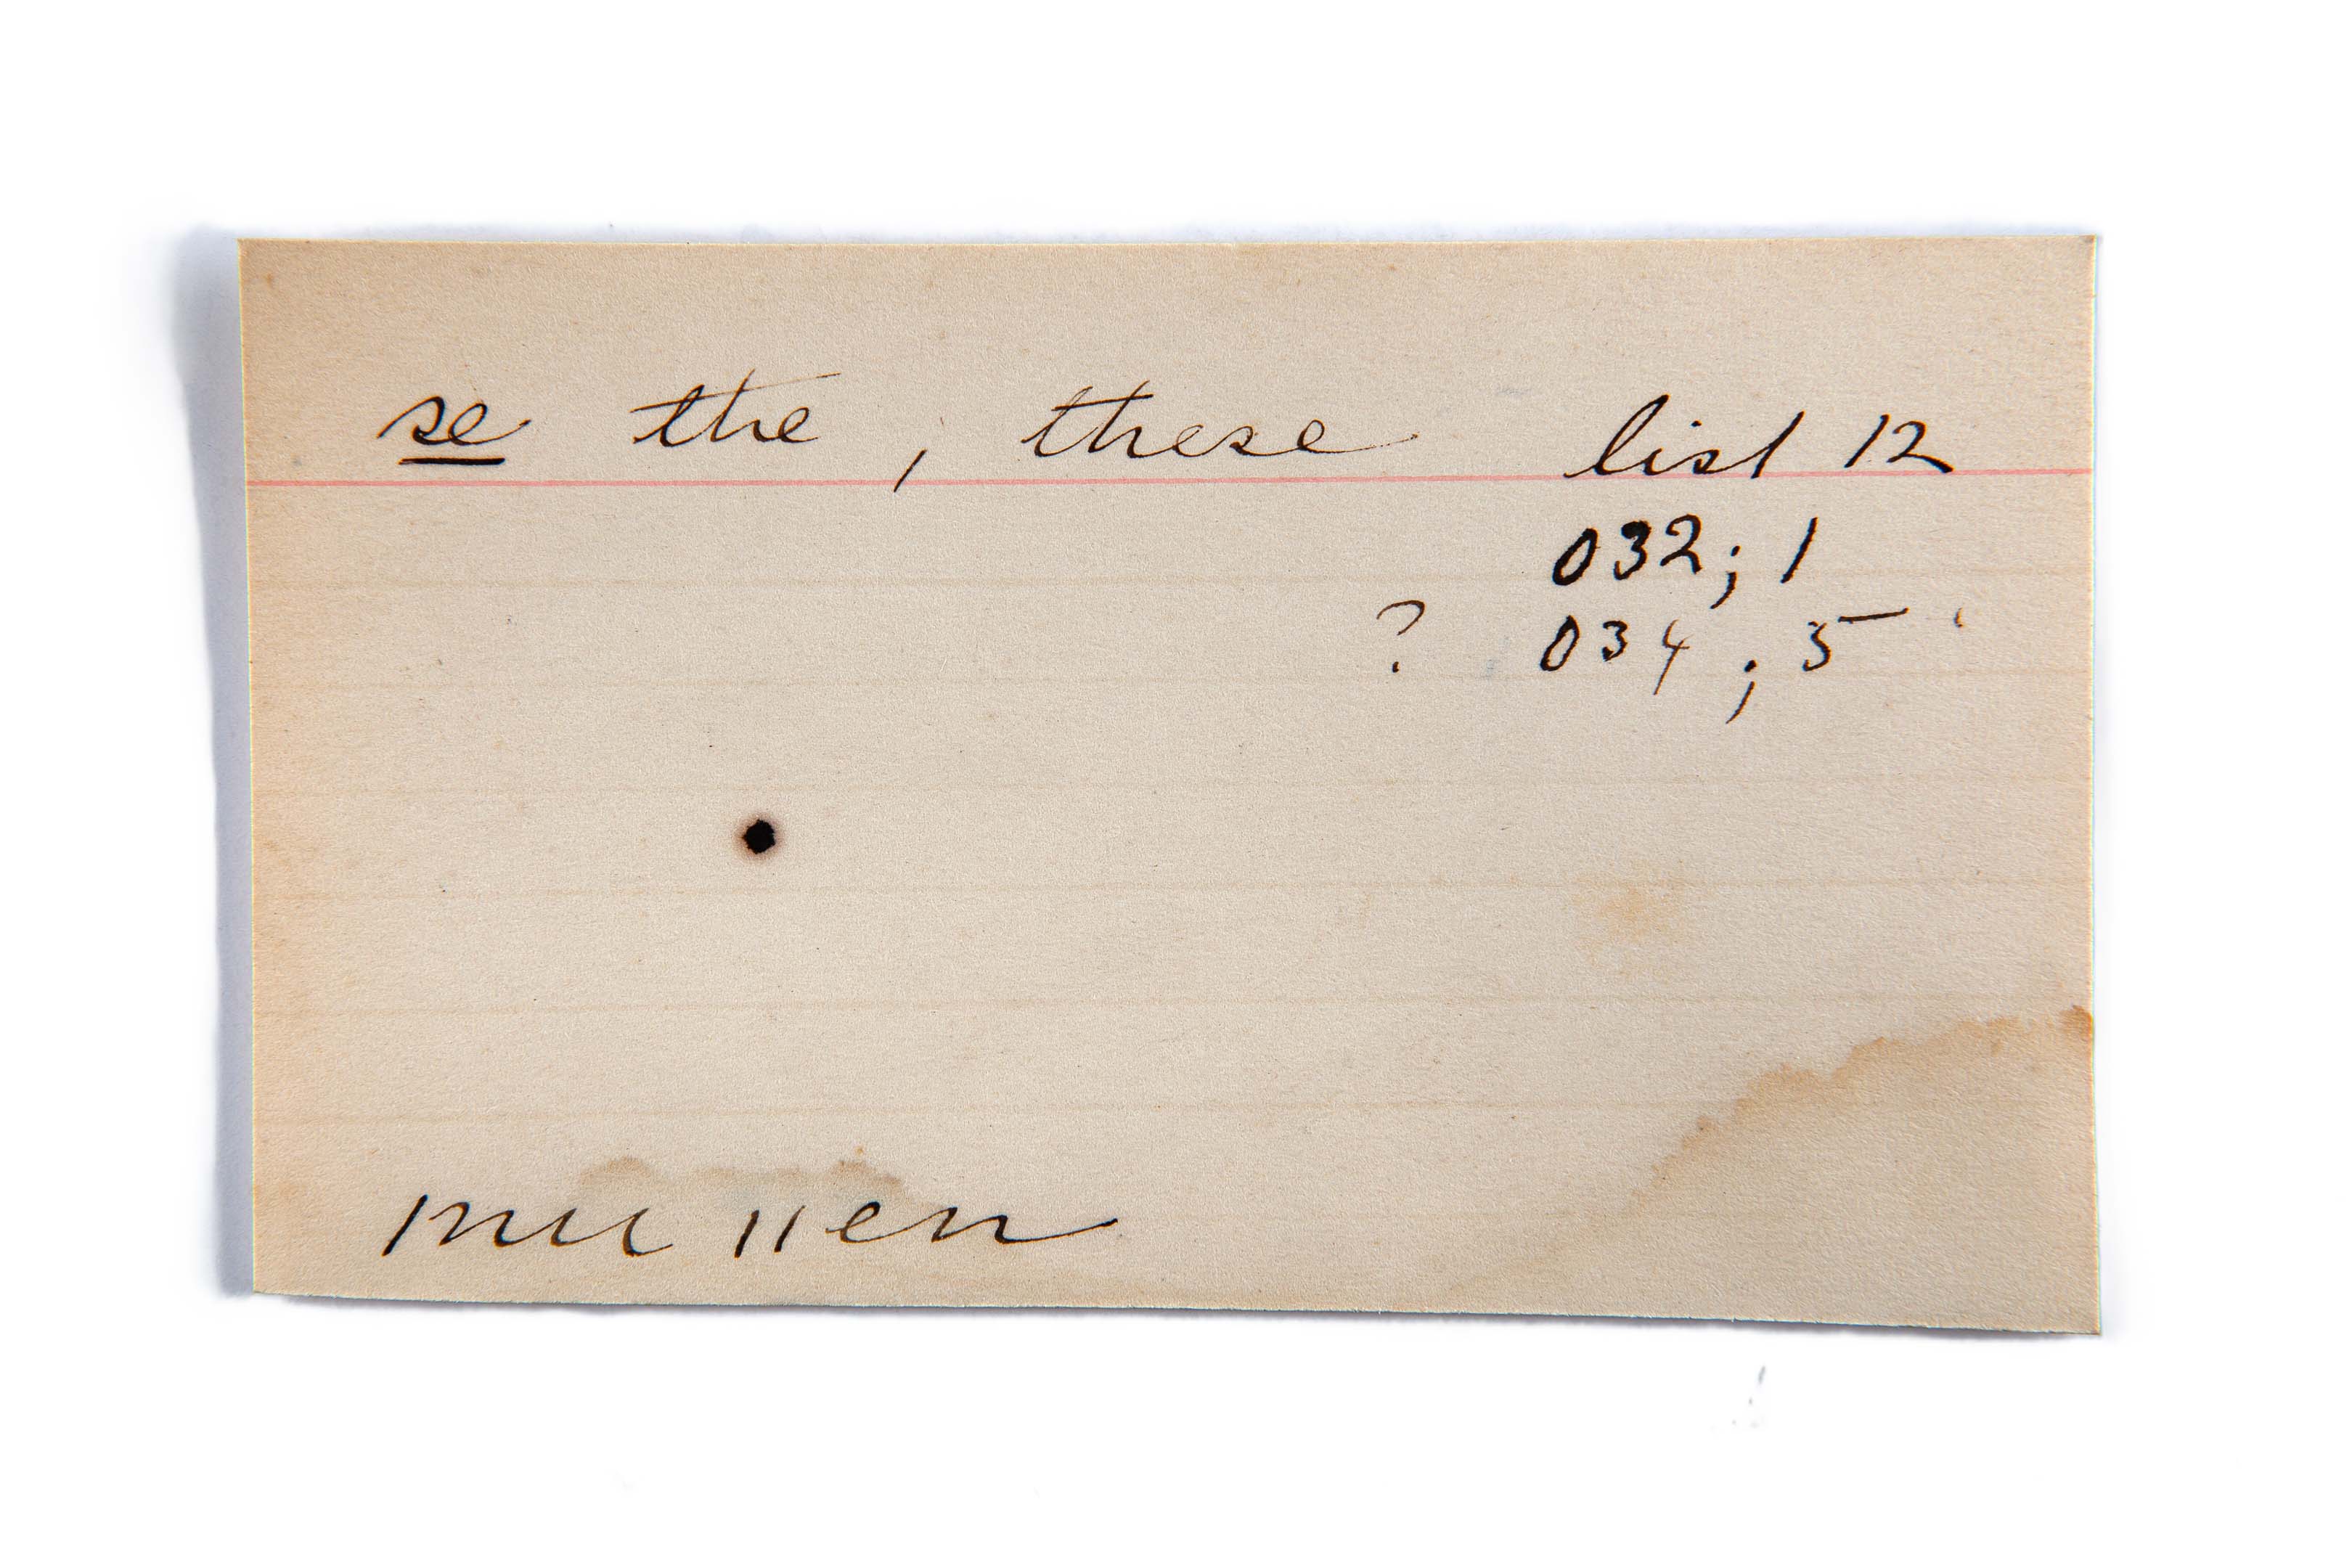 se the, these list 12
032; 1
? 034; 5